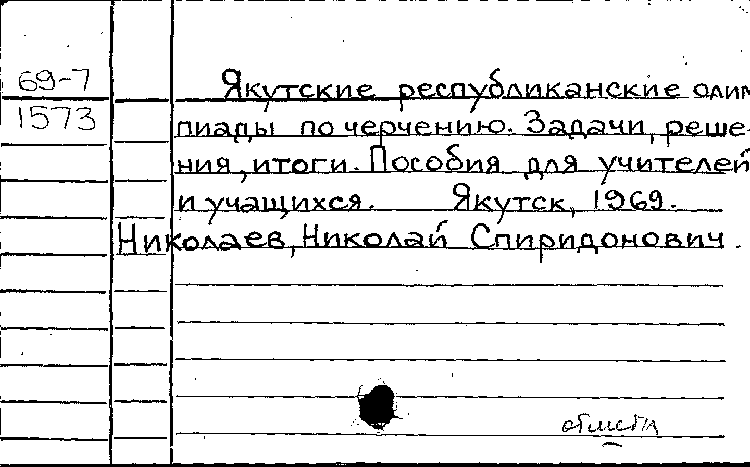 69-7
1573
Якутские республиканские олим
пиады по черчению. Задачи, реше-
ния, итоги. Пособия для учителей
и учащихся. Якутск, 1969.
Николаев, Николай Спиридонович.